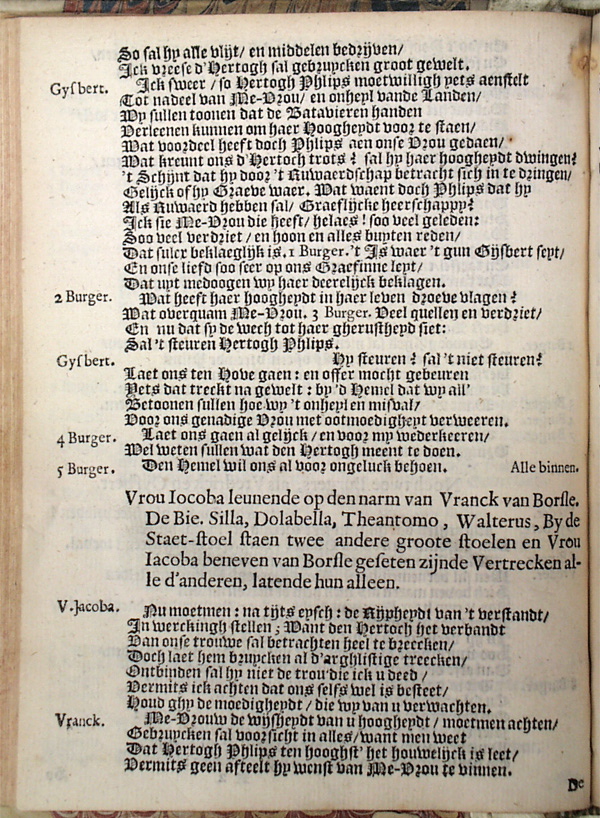 So sal hy alle vlijt/ en middelen bedrijven/
Ick vreese d'Hertogh sal gebruycken groot gewelt.
Gysbert. Ick sweer/so Hertogh Phlips moetwilligh yets aenstelt
Tot nadeel van Me-Vrou/ en onheyl vande Landen/
Wy sullen toonen dat de Batavieren handen
Verleenen kunnen om haer Hoogheydt voor te staen/
Wat voordeel heeft doch Phlips aen onse Vrou gedaen/
Wat kreunt ons d'Hertoch trots? sal hy haer hoogheydt dwingen?
't Schijnt dat hy door 't Ruwaerdschap betracht sich in te dringen/
Gelijck of hy Graeve waer. Wat waent doch Phlips dat hy
Als Ruwaerd hebben sal/ Graeflijcke heerschappy?
Ick sie Me-Vrou die heeft/ helaes! soo veel geleden:
Soo veel verdriet/ en hoon en alles buyten reden/
Dat sulcx beklaeglijck is. 1 Burger. 't Is waer 't gun Gijsbert seyt/
En onse liefd soo seer op ons Graefinne leyt/
Dat uyt medoogen wy haer deerelijck beklagen.
2 Burger. Wat heeft haer hoogheydt in haer leven droeve vlagen?
Wat overquam Me-Vrou. 3 Burger. Veel quellen en verdriet/
En nu dat sy de wech tot haer gherustheyd siet:
Sal 't steuren Hertogh Phlips.
Gysbert. Hy steuren? sal 't niet steuren?
Laet ons ten Hove gaen: en offer mocht gebeuren
Yets dat treckt na gewelt: by 'd Hemel dat wy all'
Betoonen sullen hoe wy 't onheyl en misval/
Voor ons genadige Vrou met ootmoedigheyt verweeren.
4 Burger. Laet ons gaen al gelijck/en voor my wederkeeren/
Wel weten sullen wat den Hertogh meent te doen.
5 Burger. Den Hemel wil ons al voor ongeluck behoen. Alle binnen.
Vrou Iocoba leunende op den narm van Vranck van Borsle.
De Bie. Silla, Dolabella, Theantomo, Walterus, By de
Staet-stoel staen twee andere groote stoelen en Vrou
Iacoba beneven van Borsle geseten zijnde Vertrecken al-
le d'anderen, latende hun alleen.
V. Jacoba. Nu moetmen: na tijts eysch: de Rijpheydt van 't verstandt/
In werckingh stellen; Want den Hertoch het verbandt
Van onse trouwe sal betrachten heel te breecken/
Doch laet hem bruycken al d'arghlistige treecken/
Ontbinden sal hy niet de trou die ick u deed/
Vermits ick achten dat ons selfs wel is besteet/
Houd ghy de moedigheydt/ die wy van u verwachten.
Vranck. Me-Vrouw de wijsheydt van u hoogheydt/ moetmen achten/
Gebruycken sal voorsicht in alles/want men weet
Dat Hertogh Phlips ten hooghst' het houwelijck is leet/
Vermits geen afteelt hy wenst van Me-Vrou te vinnen.
De